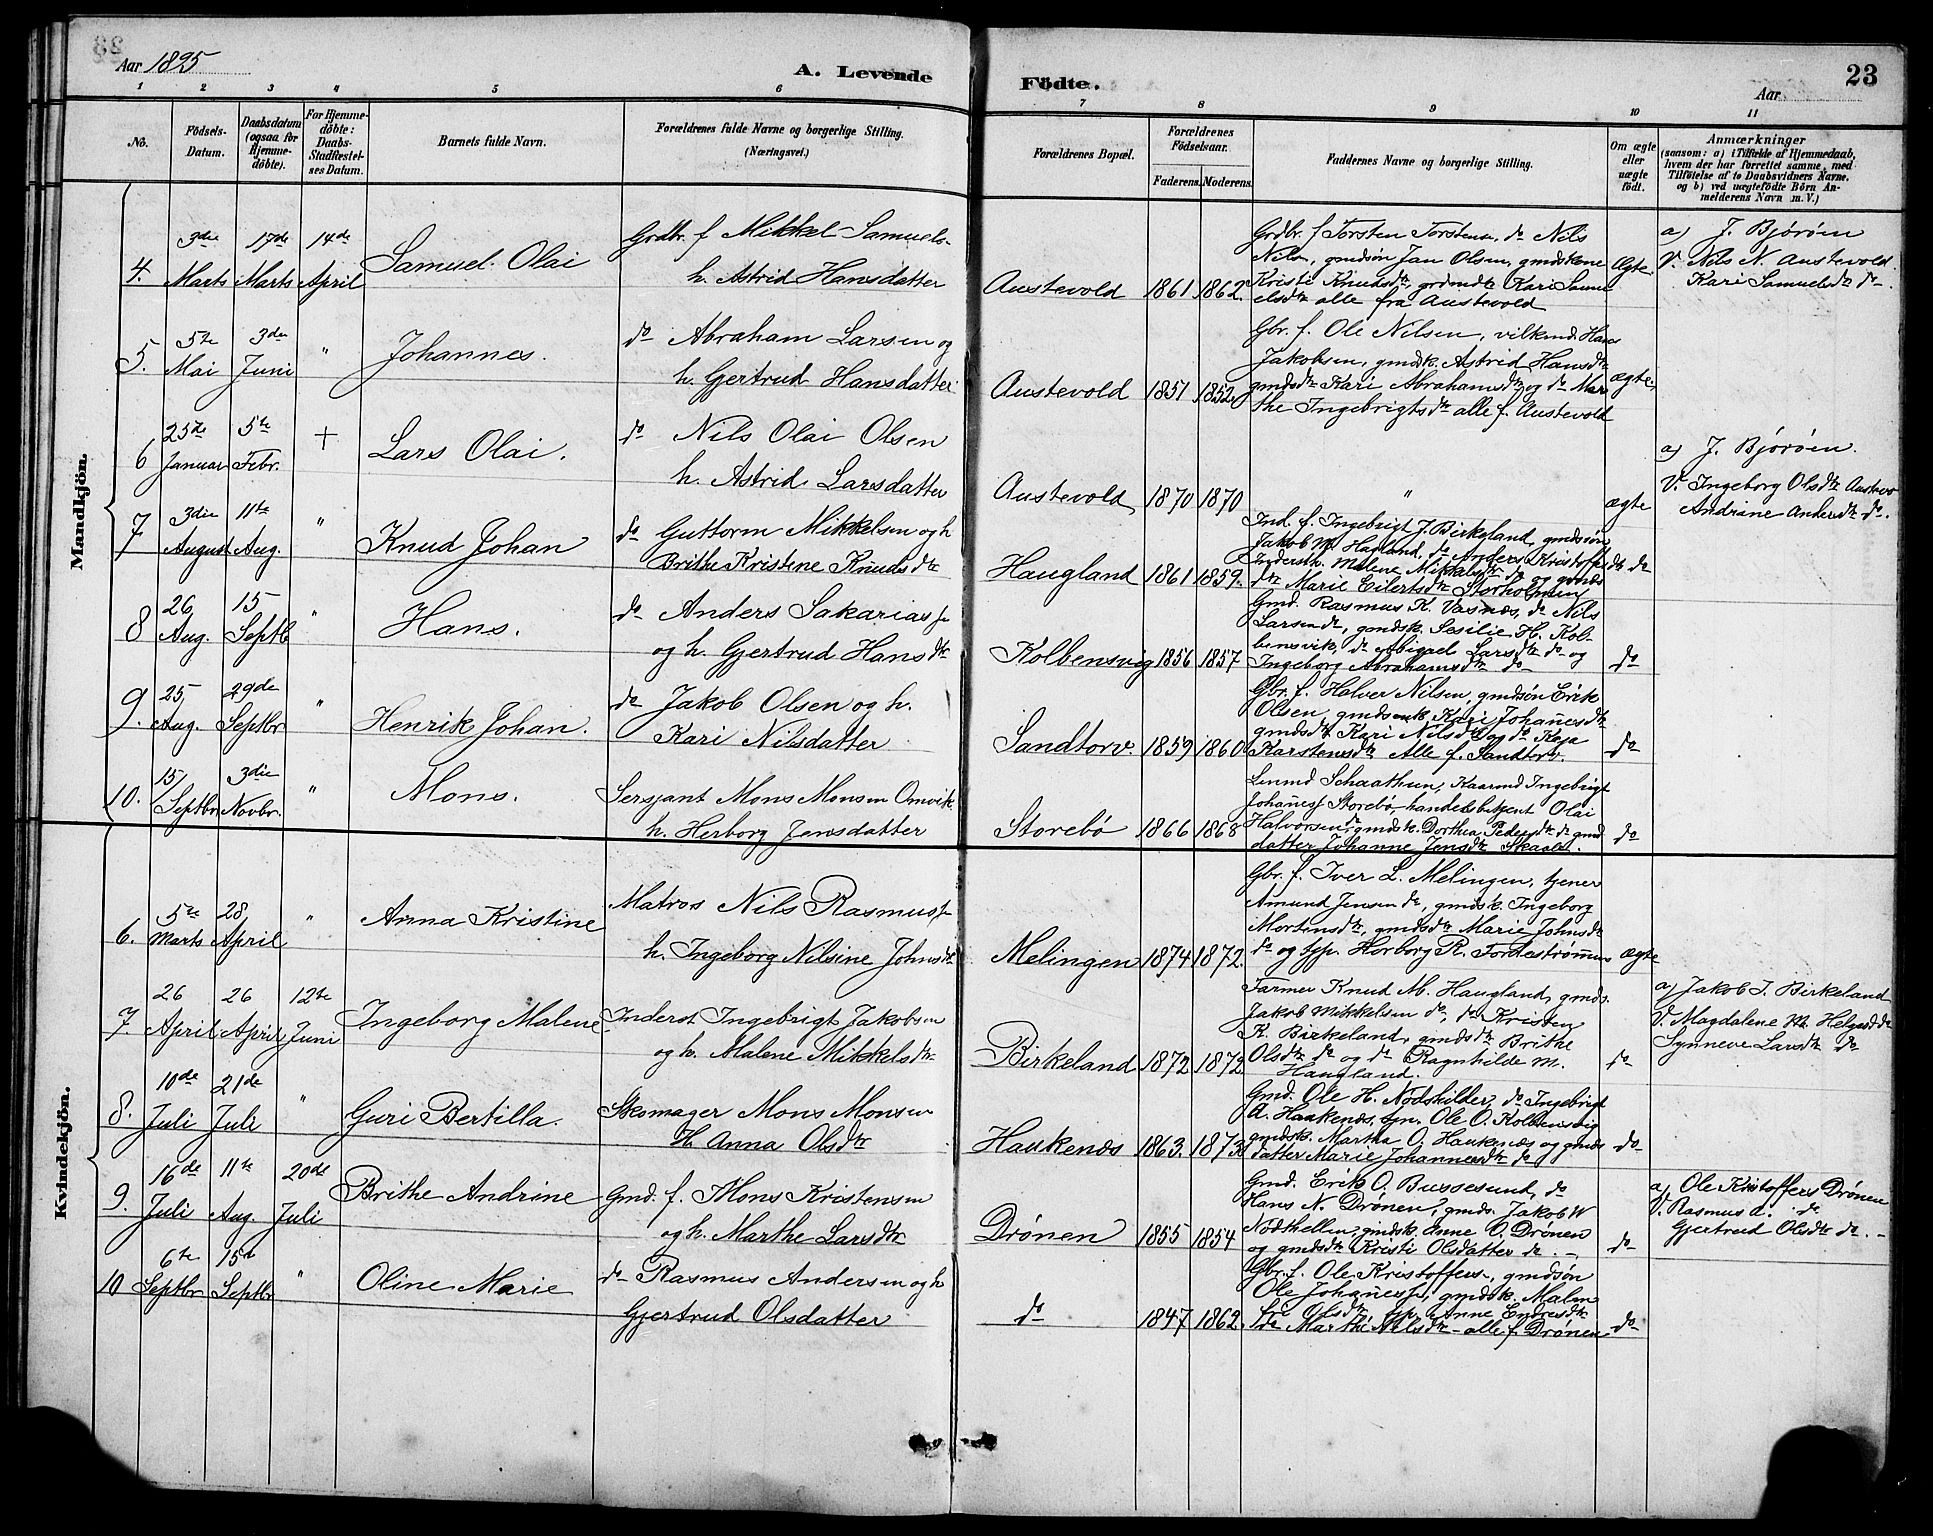 Aar 1895
A. Levende
Födte.
Aar
23
1 2 3 4 5 6 7 8 9 10 11
No.
Födsels-
Datum.
Daabsdatum
(ogsaa for
Hjemme-
döbte).
For Hjemme-
döbte:
Daabs-
Stadfæstel-
ses Datum.
Barnets fulde Navn.
Forældrenes fulde Navne og borgerlige Stilling.
(Næringsvei.)
Forældrenes Bopæl.
Forældrenes
Födselsaar.
Faderens. Moderens.
Faddernes Navne og borgerlige Stilling.
Om ægte
eller
uægte
födt.
Anmærkninger
(saasom: a) i Tilfælde af Hjemmedaab,
hvem der har forrettet samme, med
Tilföielse af to Daabsvidners Navne.
og b) ved uægtefödte Börn An-
melderens Navn m. V.)
Mandkjön.
4.
3die
Marts
17de
Marts
14de
April
Samuel Olai
Grdbr. f Mikkel Samuels-
h. Astrid Hansdatter
Austevold 1861 1862.
Grdbr. f Torsten Torstens., do Nils
Nils, gmdsøn Jan Olsen, gmdskone
Kristi Knudsdtr, grdmdtr Kari Samu-
elsdtr alle fra Austevold
Ægte
a) J. Bjørøen
V. Nils N. Austevold.
Kari Samuelsdtr do
5.
5te
Mai
3die
Juni
"
Johannes.
do Abraham Larsen og
h. Gjertrud Hansdatter
Austevold 1851 1852
Gbr. f. Ole Nilsen, Hans
Jakobsen, gmdsk. Astrid Hansdtr
gmdsdtr Kari Abrahamsdtr og do Mar-
the Ingebrigtsdtr alle f. Austevold
ægte.
6
25de
Januar
5te
Febr.
+
Lars Olai.
do Nils Olai Olsen
h. Astrid Larsdatter
Austevold 1870 1870
"
ægte
a) J. Bjørøen.
V. Ingeborg Olsdtr Austevo
Andrine Andersdtr do.
7
3die
August
11te
Aug.
"
Knud Johan
do Guttorm Mikkelsen og h
Brithe Kristine Knudsdtr
Haugland 1861 1859.
Ind. f. Ingebrigt J. Birkeland, gmdsøn
Jakob M. Hagland, do Anders Kristoffe
Inderstk. Malene Mikkelsdtr do og gmds
dtr Marie Eilertsdtr Storholmen
do
8
26
Aug.
15
Septb
"
Hans.
do Anders Sakariass
og h. Gjertrud Hansdtr
Kolbensvig 1856 1857
Gmd. Rasmus K. Vasnæs, do Nils
Larsen do, gmdsk. Sesilie H. Kol-
bensvik, do Abigael Larsdtr do og
Ingeborg Abrahamsdtr do
do
9.
25
Aug.
29de
Septbr
"
Henrik Johan.
do Jakob Olsen og h.
Kari Nilsdatter
Sandtorv. 1859 1860
Gbr. f. Halver Nilsen, gmdsøn Erik
Olsen, gmdsenk. Kari Johanesdtr
gmdsdtr Kari Nilsdtr og do Kaja
Karstensdtr Alle f. Sandtorv.
do
10.
15
Septbr
3die
Novbr.
"
Mons.
Sersjant Mons Monsen Omvik.
h. Herborg Jensdatter
Storebø 1866 1868
Lensmd Schaathun, Kaarmd Ingebrigt
Johanesf Storebø, handelsbetjent Olai
Halvorsen do, gmdsk. Dorthea Pedersdtr do gmd
datter Johanne Jensdtr Skaale.
do
Kvindekjön.
6.
5te
Marts
28
April
"
Anna Kristine
Matros Nils Rasmuss
h. Ingeborg Nilsine Johnsdtr
Melingen 1874 1872.
Gbr. f. Iver L. Melingen, tjener
Amund Jensen do, gmdsk. Ingeborg
Mortensdtr, gmdsdtr Marie Johnsdtr
do og tjp. Herborg R. Fordestrømmen
ægte
7
26
April
26
April
12te
Juni
Ingeborg Malene
Inderst Ingebrigt Jakobsen
og h. Malene Mikkelsdtr
Birkeland 1872 1872
Farmer Knud M. Haugland, gmds.
Jakob Mikkelsen do, do Kristen
K. Birkeland, gmdsdtr Brithe
Olsdtr do og do Ragnhilde M.
Haugland.
do
a) Jakob J. Birkeland
V. Magdalene M. Helgesd do
Synneve Larsdtr do
8.
10de
Juli
21de
Juli
"
Guri Bertilla.
Skomager Mons Monsen
H. Anna Olsdtr
Haukenæs 1863. 1873
Gmd. Ole H. Nodskilder, do Ingebrigt
A. Haukenæs, tjn. Ole O. Kolbensvig
gmdsk. Martha O. Haukenæs og gmds
datter Marie Johannesdtr do
do
9.
16de
Juli
11te
Aug.
20de
Juli
Brithe Andrine
Gmd. f. Mons Kristensen
og h. Marthe Larsdtr
Drönen 1855 1854
Gmd. Erik O. Bussesund, do
Hans N. Drönen, gmds. Jakob W
gmdsk. Anne O. Drönen
og gmdsdtr Kristi Olsdatter do.
do
a) Ole Kristoffers Drönen
V. Rasmus A. do
Gjertrud Olsdtr do.
10
6te
Septbr
15de
Septbr
"
Oline Marie
do Rasmus Andersen og h
Gjertrud Olsdatter
do 1847 1862
Gbr. f. Ole Kristoffers, gmdsøn
Ole Johanesf, gmdsk. Malen
Olsdtr tjp. Anne Endresdtr
Marthe Nilsdtr alle f Drönen
do